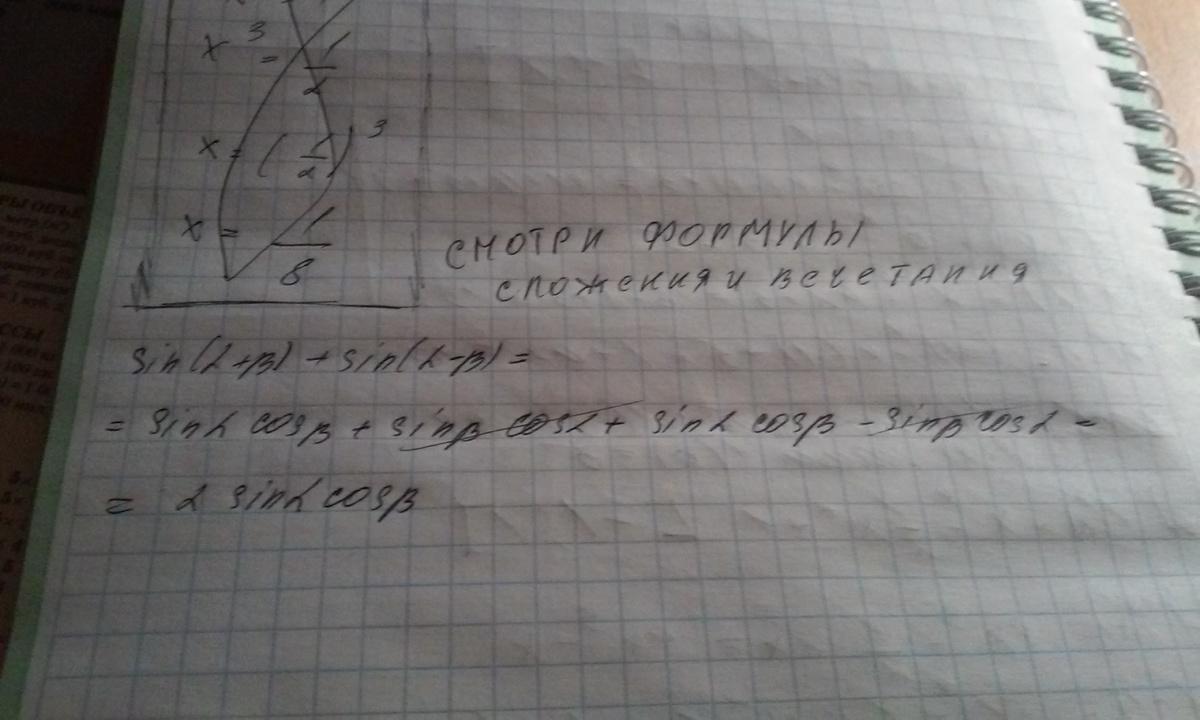 x³ = 1/2
x = (1/2)³
x = 1/8
СМОТРИ ФОРМУЛЫ
СЛОЖЕНИЯ И ВЕЧЕТАНИЯ
sin(α+β) + sin(α-β) =
= sinα cosβ + sinβ cosα + sinα cosβ - sinβ cosα =
= 2 sinα cosβ
РЫ ОБЪЕ
ССЫ